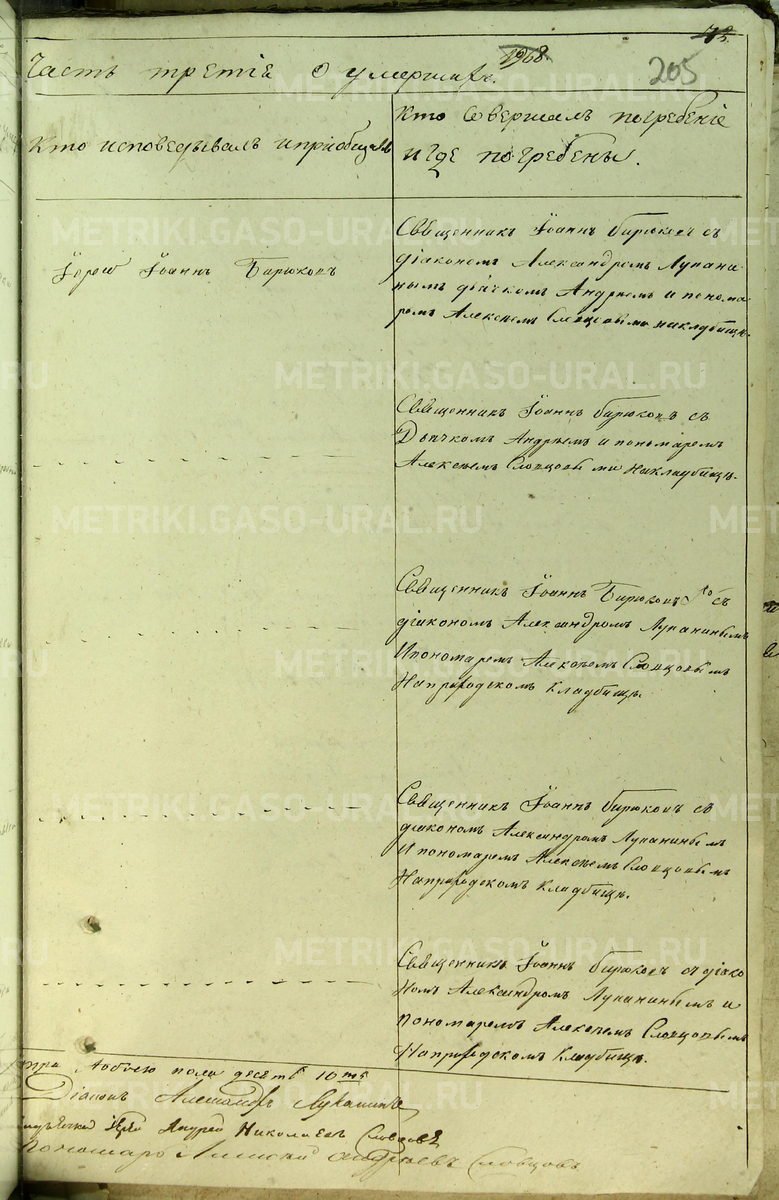 73.
1968.
205
Часть третiя о умершихъ.
Кто исповедывалъ и прiобщалъ
Кто совершалъ погребенiе
и где погребены.
Iерей Iоаннъ Бирюковъ
Священникъ Iоаннъ Бирюковъ съ
дiакономъ Александромъ Лукани
нымъ дьячкомъ Андреемъ и понома
ремъ Алексеемъ Словцовыми на кладбище.
Священникъ Iоаннъ Бирюковъ съ
Дьячкомъ Андреемъ и пономаремъ
Алексеемъ Словцовыми На кладбище.
Священникъ Iоаннъ Бирюковъ съ
дiакономъ Александромъ Луканинымъ
И пономаремъ Алексеемъ Словцовымъ
На приходскомъ кладбище.
Священникъ Iоаннъ Бирюковъ съ
дiакономъ Александромъ Луканинымъ
И пономаремъ Алексеемъ Словцовымъ
На приходскомъ Кладбище.
Священникъ Iоаннъ Бирюковъ съ дiако
номъ Александромъ Луканинымъ и
пономаремъ Алексеемъ Словцовымъ
На приходскомъ Кладбище.
обоего пола десять 10ть
Дiаконъ Александръ Луканинъ
Андрей Николаевъ Словцовъ
Пономарь Алексей Андреевъ Словцовъ
METRIKI.GASO-URAL.RU